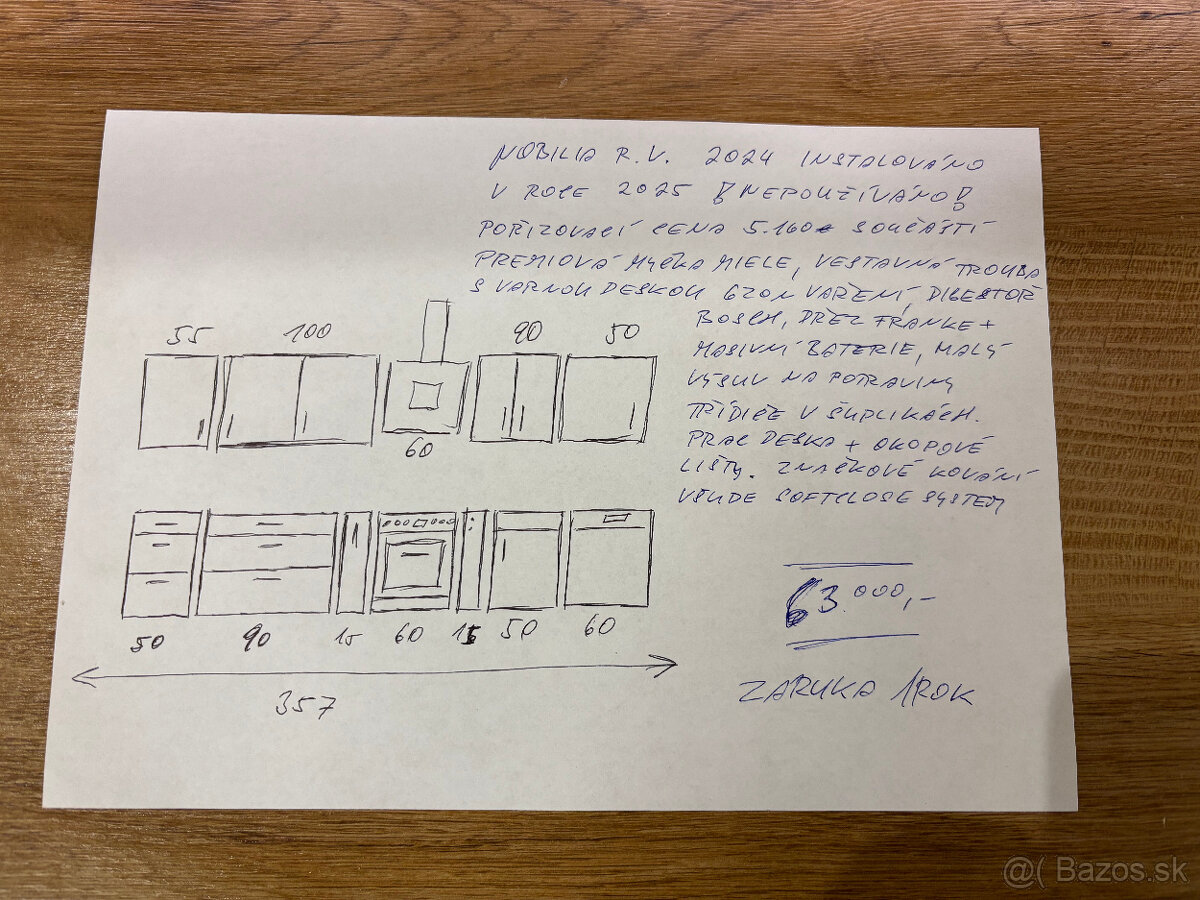 NOBILIA R.V. 2024 INSTALOVÁNO
V ROCE 2025 ! NEPOUŽÍVÁNO!
POŘIZOVACÍ CENA 5.160€ SOUČÁSTÍ
PREMIOVÁ MYČKA MIELE, VESTAVNÁ TROUBA
S VARNOU DESKOU 6ZON VAŘENÍ, DIGESTOŘ
BOSCH, DŘEZ FRANKE +
MASIVNÍ BATERIE, MALÝ
VÝSUV NA POTRAVINY
TŘÍDIČE V ŠUPLÍKÁCH.
PRAC DESKA + OKOPOVÉ
LIŠTY. ZNAČKOVÉ KOVÁNÍ
VŠUDE SOFTCLOSE SYSTEM
55 100 90 50
60
50 90 15 60 15 50 60
357
63.000,-
ZÁRUKA 1ROK
@( Bazos.sk